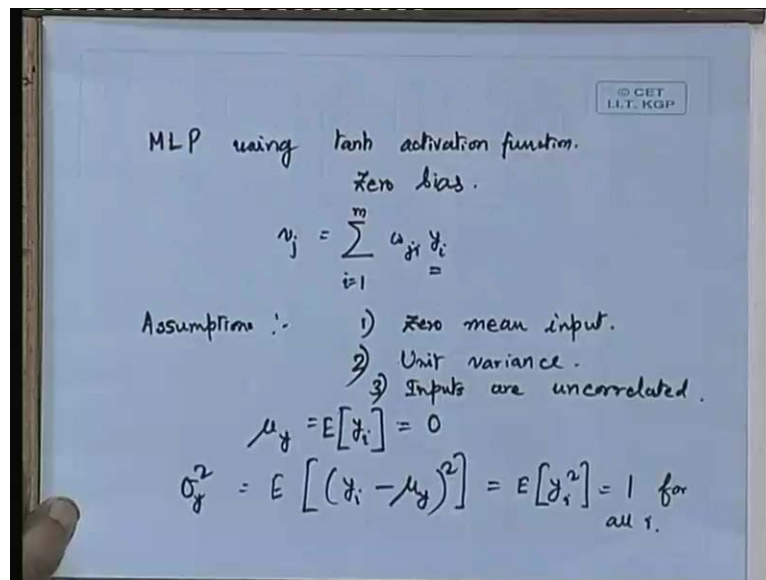 © CET
I.I.T. KGP
MLP using tanh activation function.
Zero bias.
v_j = \sum_{i=1}^{m} ω_{ji} y_i
Assumptions :- 1) Zero mean input.
2) Unit variance.
3) Inputs are uncorrelated.
μ_y = E[y_i] = 0
σ_y^2 = E[(y_i - μ_y)^2] = E[y_i^2] = 1 for
all i.